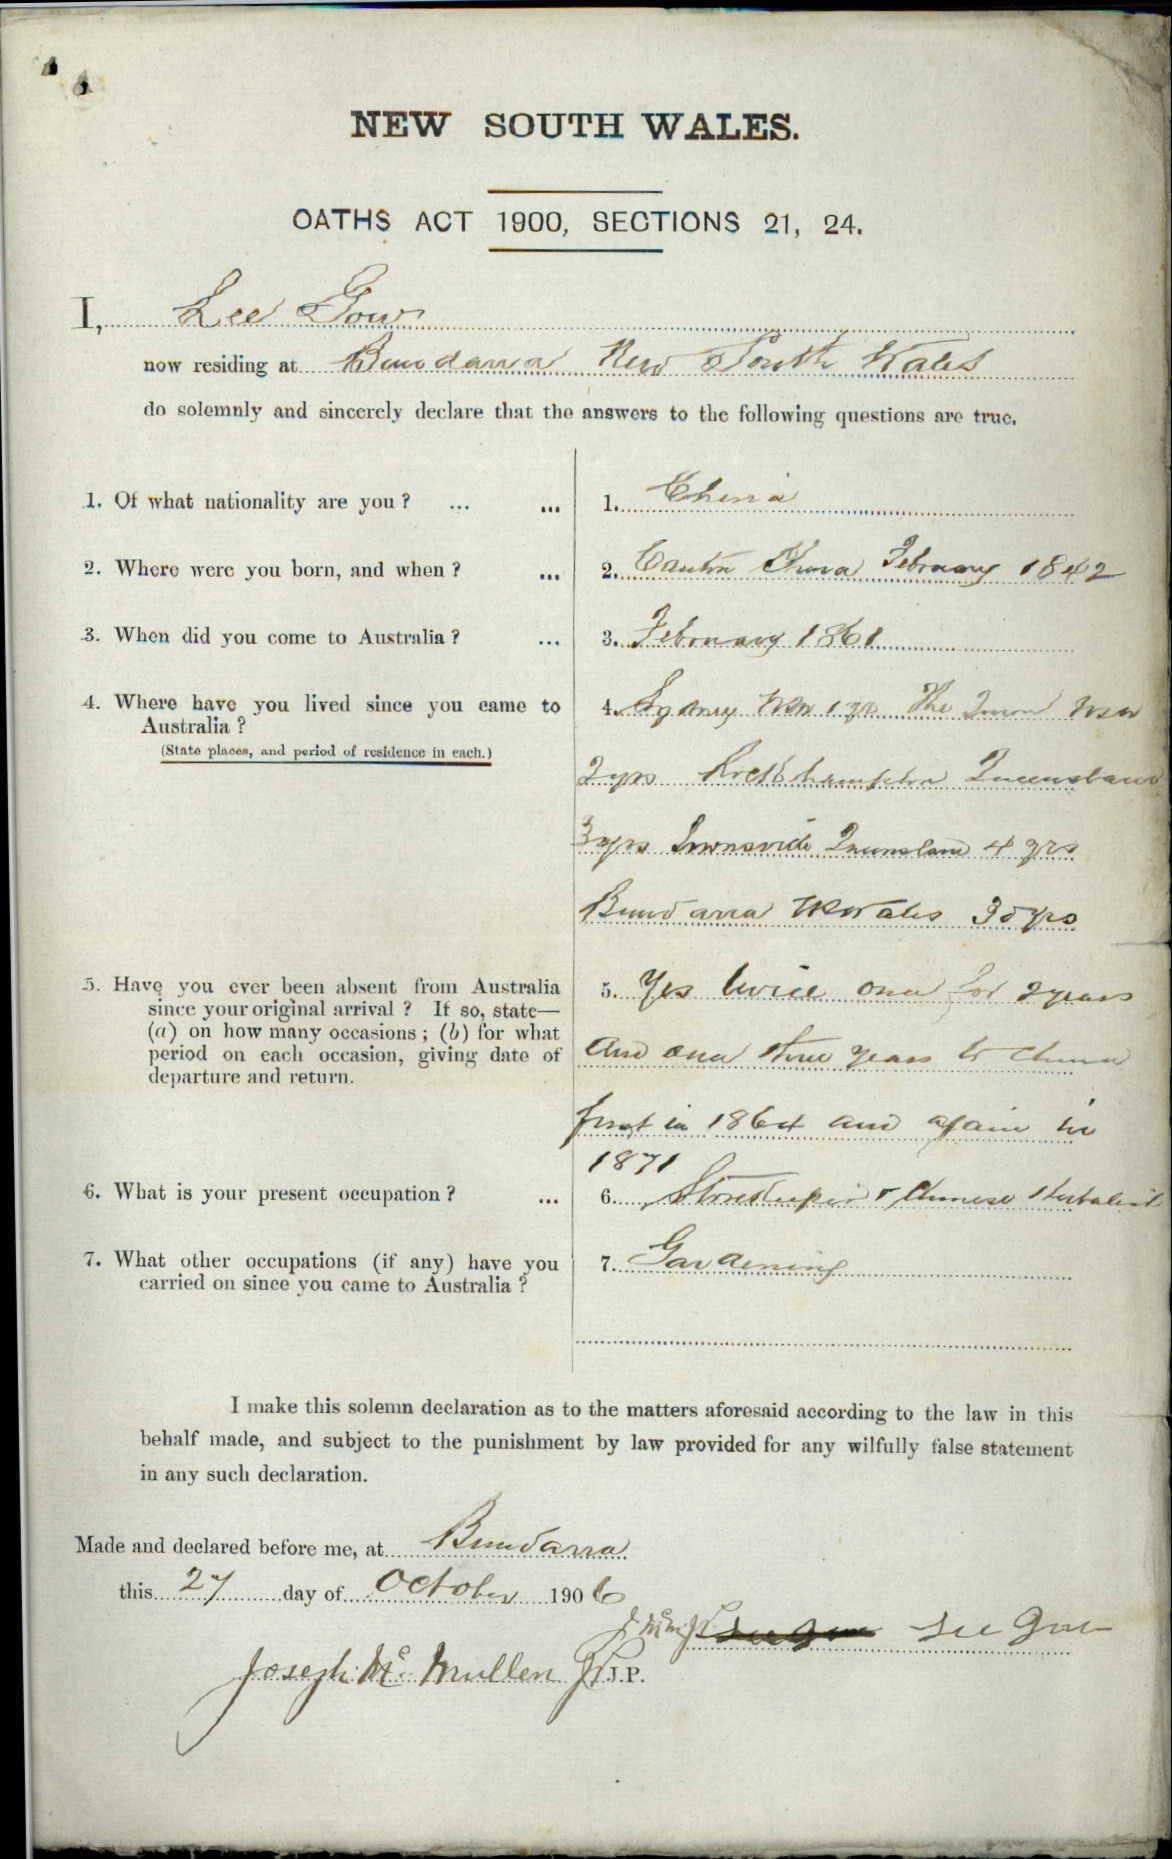 NEW SOUTH WALES.
OATHS ACT 1900, SECTIONS 21, 24.
I, Lee Gow
now residing at Bundarra New South Wales
do solemnly and sincerely declare that the answers to the following questions are true.
1. Of what nationality are you? ... ... 1. China
2. Where were you born, and when? ... 2. Canton China February 1842
3. When did you come to Australia? ... 3. February 1861
4. Where have you lived since you came to 4. Sydney NSW 1 yr The NSW
Australia?
(State places, and period of residence in each.)
2 yrs Rockhampton Queensland
3 yrs Townsville Queensland 4 yrs
Bundarra NSWales 30 yrs
5. Have you ever been absent from Australia 5. Yes twice one for 2 years
since your original arrival? If so, state—
(a) on how many occasions; (b) for what
period on each occasion, giving date of and one three years to China
departure and return.
first in 1864 and again in
1871
6. What is your present occupation? ... 6. Storekeeper & Chinese Herbalist
7. What other occupations (if any) have you 7. Gardening
carried on since you came to Australia?
I make this solemn declaration as to the matters aforesaid according to the law in this
behalf made, and subject to the punishment by law provided for any wilfully false statement
in any such declaration.
Made and declared before me, at Bundarra
this 27 day of October 1906
J McM JP Lee Gow
Joseph McMullen JP J.P.